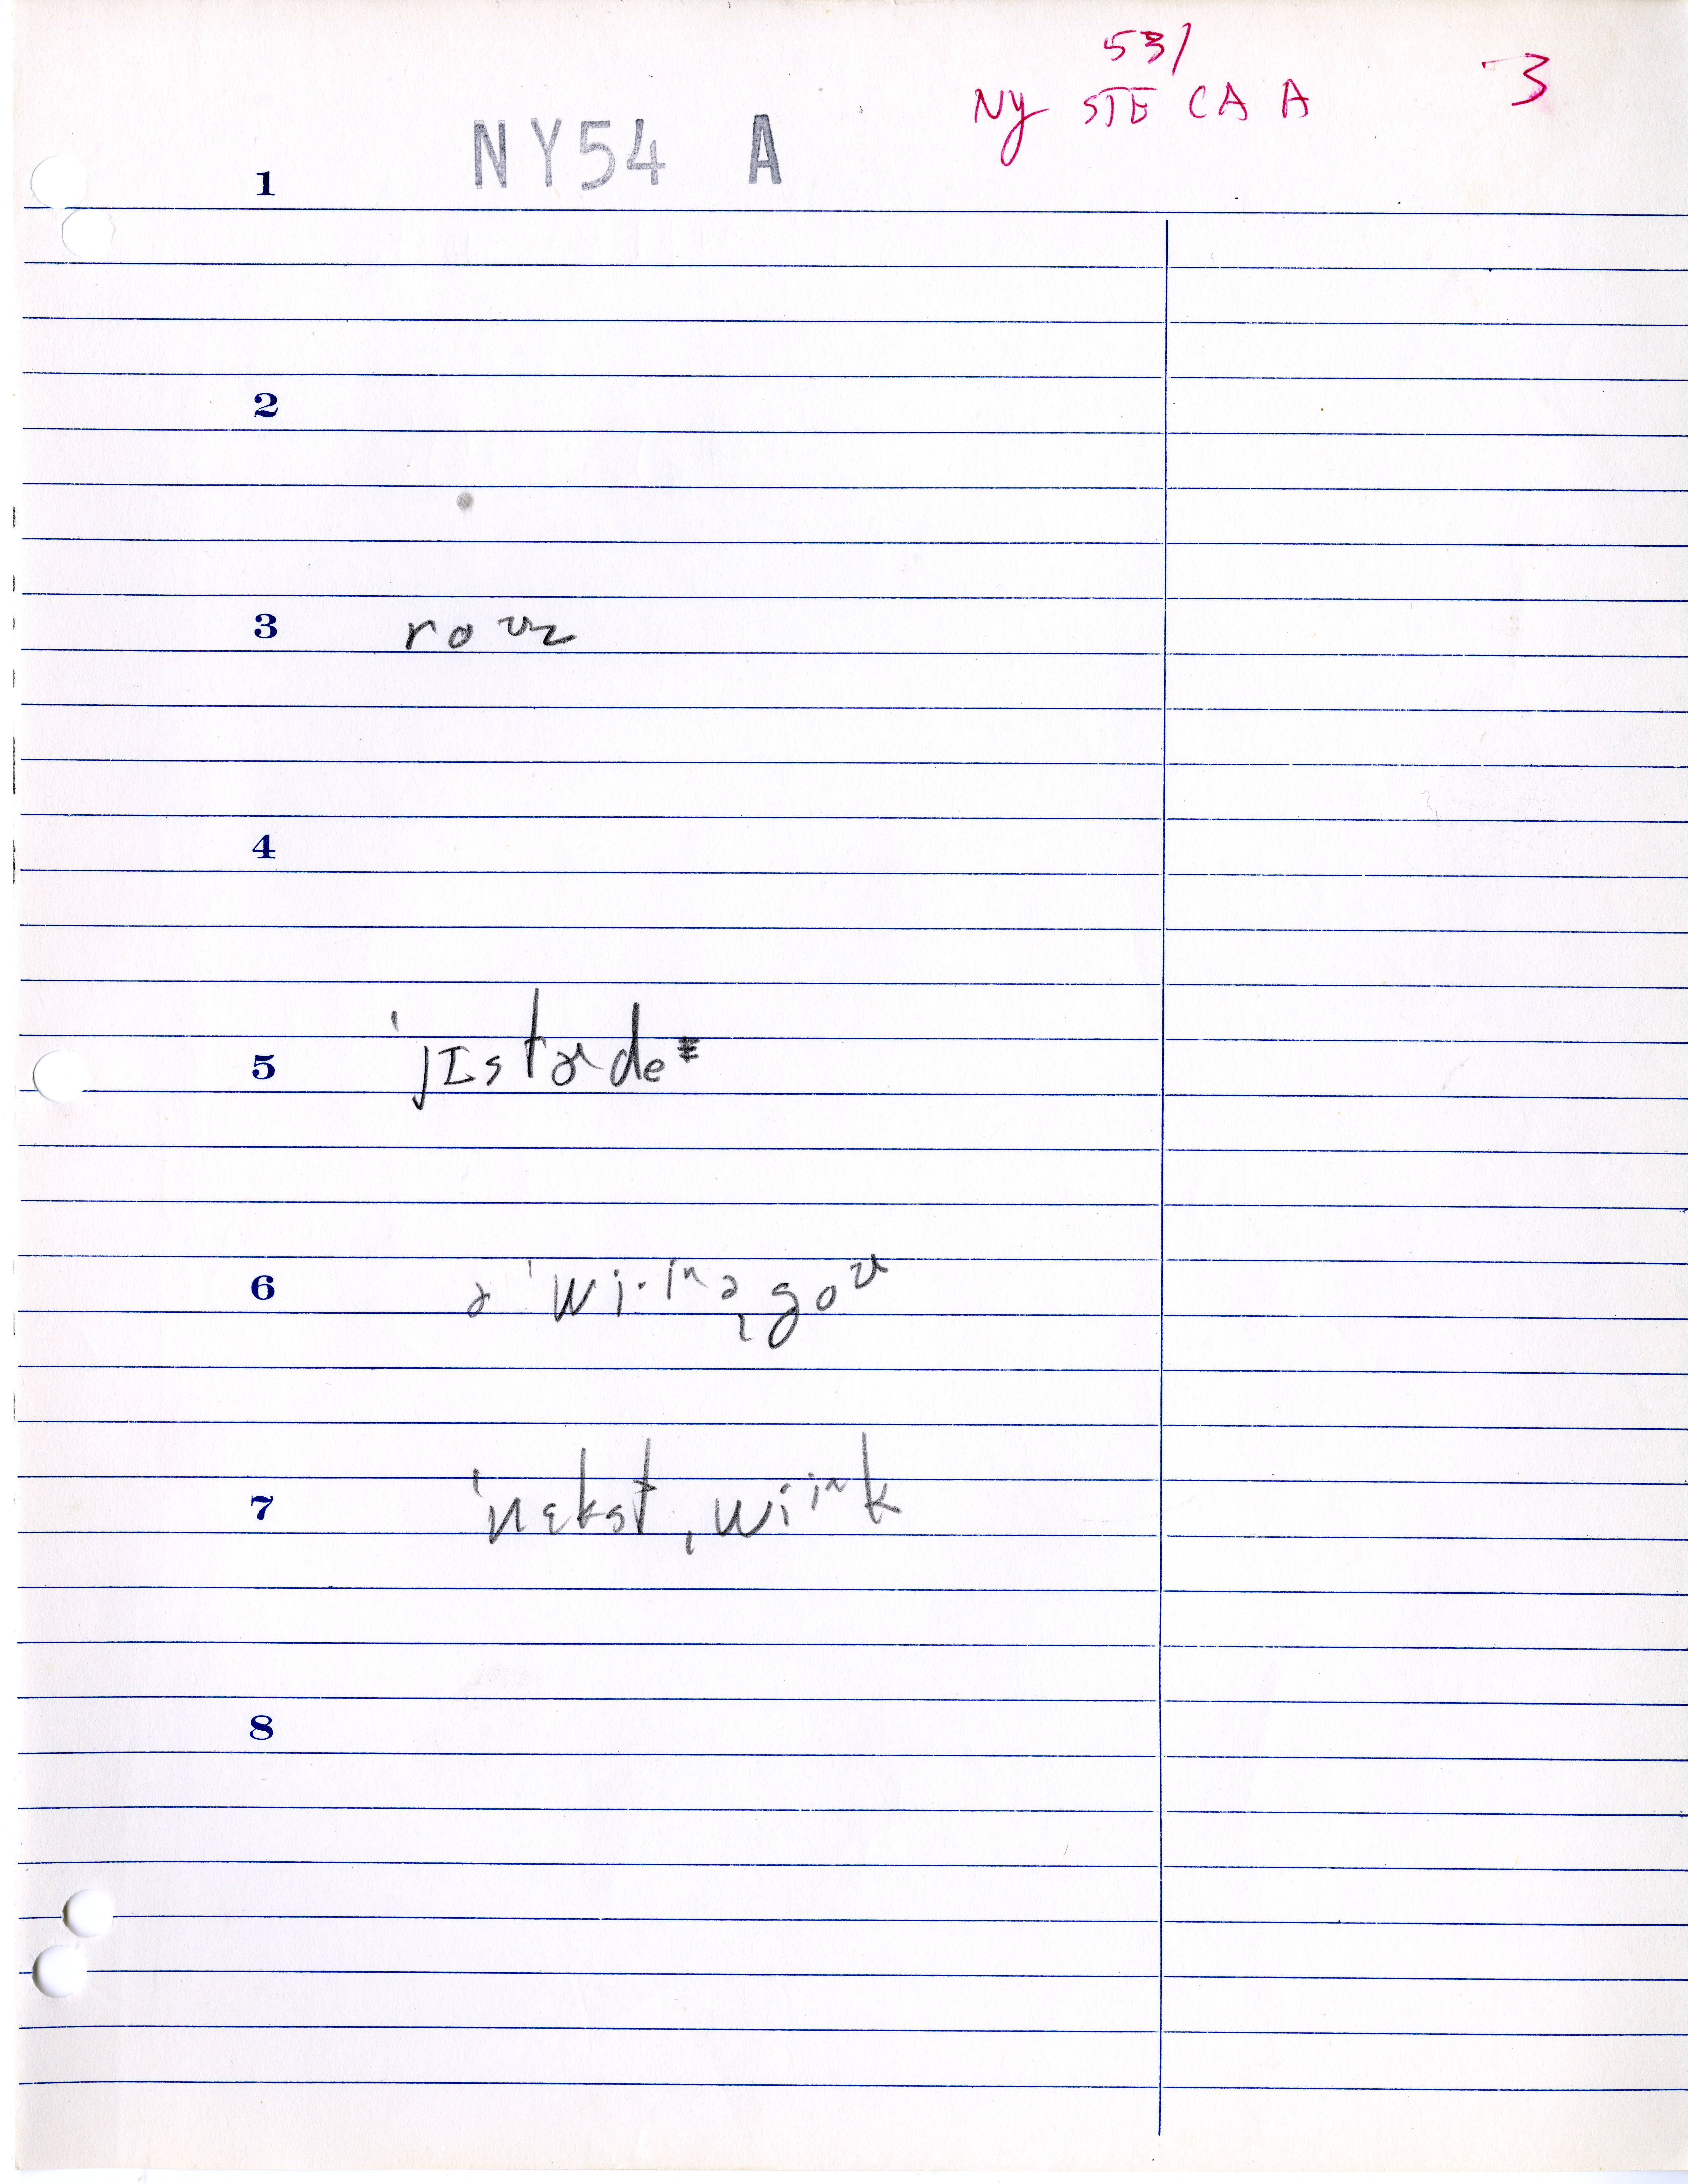 531
NY STE CA A 3
NY54 A
1
2
3 roᶷz
4
5 ˈjɪstɚde
6 ə ˈwi·ⁱⁿəˌgoᶷ
7 ˈnɛkstˌwiⁱ^k
8